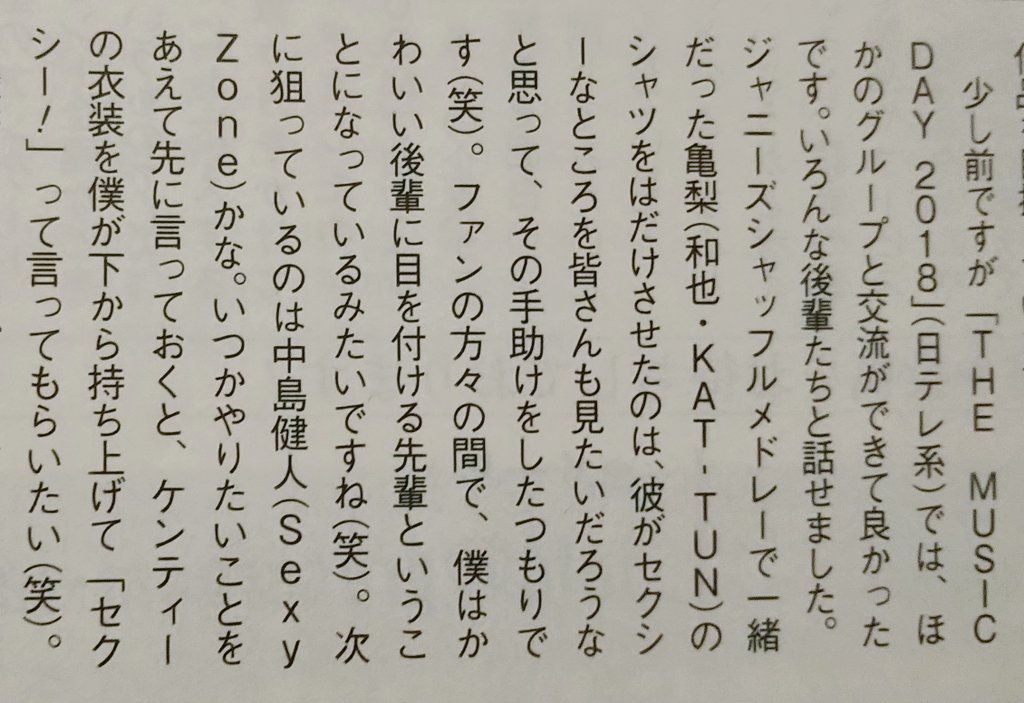 少し前ですが「THE MUSIC
DAY 2018」(日テレ系)では、ほ
かのグループと交流ができて良かった
です。いろんな後輩たちと話せました。
ジャニーズシャッフルメドレーで一緒
だった亀梨(和也・KAT-TUN)の
シャツをはだけさせたのは、彼がセクシ
ーなところを皆さんも見たいだろうな
と思って、その手助けをしたつもりで
す(笑)。ファンの方々の間で、僕はか
わいい後輩に目を付ける先輩というこ
とになっているみたいですね(笑)。次
に狙っているのは中島健人(Sexy
Zone)かな。いつかやりたいことを
あえて先に言っておくと、ケンティー
の衣装を僕が下から持ち上げて「セク
シー!」って言ってもらいたい(笑)。